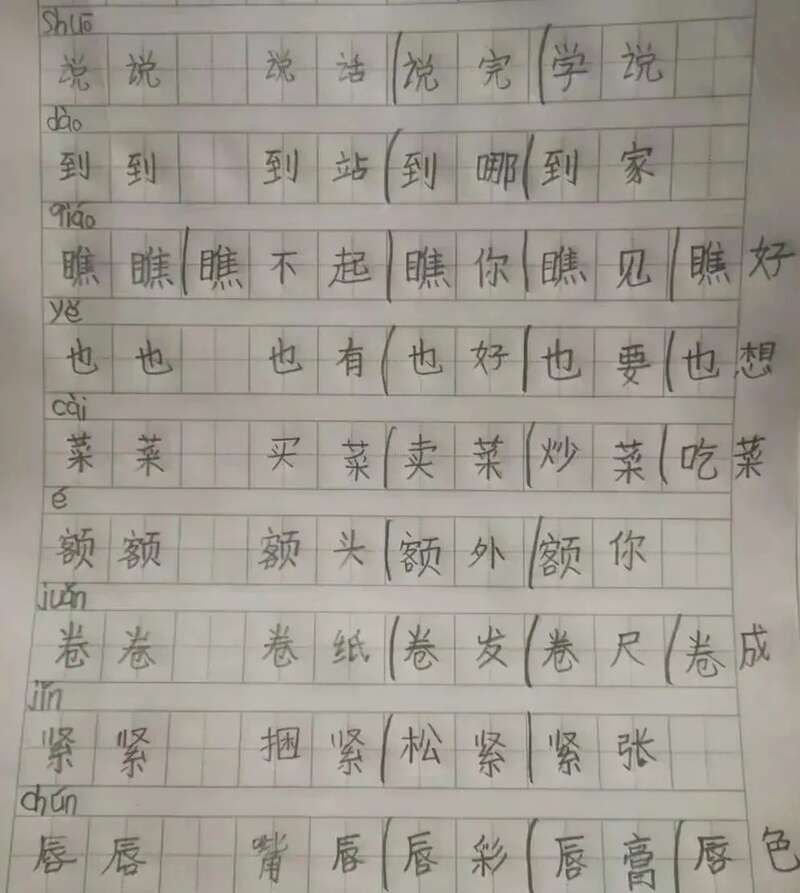 shuō
说 说 说 话 ( 说 完 ( 学 说
dào
到 到 到 站 ( 到 哪 ( 到 家
qiáo
瞧 瞧 ( 瞧 不 起 ( 瞧 你 ( 瞧 见 ( 瞧 好
yě
也 也 也 有 ( 也 好 ( 也 要 ( 也 想
cài
菜 菜 买 菜 ( 卖 菜 ( 炒 菜 ( 吃 菜
é
额 额 额 头 ( 额 外 ( 额 你
juǎn
卷 卷 卷 纸 ( 卷 发 ( 卷 尺 ( 卷 成
jǐn
紧 紧 捆 紧 ( 松 紧 ( 紧 张
chún
唇 唇 嘴 唇 ( 唇 彩 ( 唇 膏 ( 唇 色